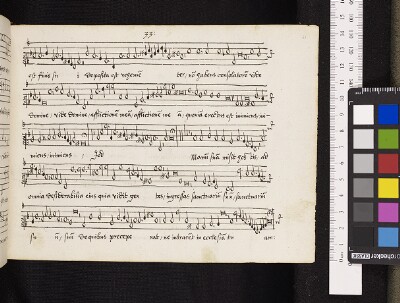 33
est finis su i Deposita est vehemē ter, nō habens consolatorē vide
Domine, vide Domine, afflictionē meā, afflictionē me ā, quoniā erectus est inimicus in
micus inimicus, Jod Manū suā misit hostis ad
omnia desiderabilia eius quia vidit gen tes, ingressas sanctuariū suū, sanctuariū
su ū, suū De quibus precepe rat, ne intrarent in ecclesiā tu am: